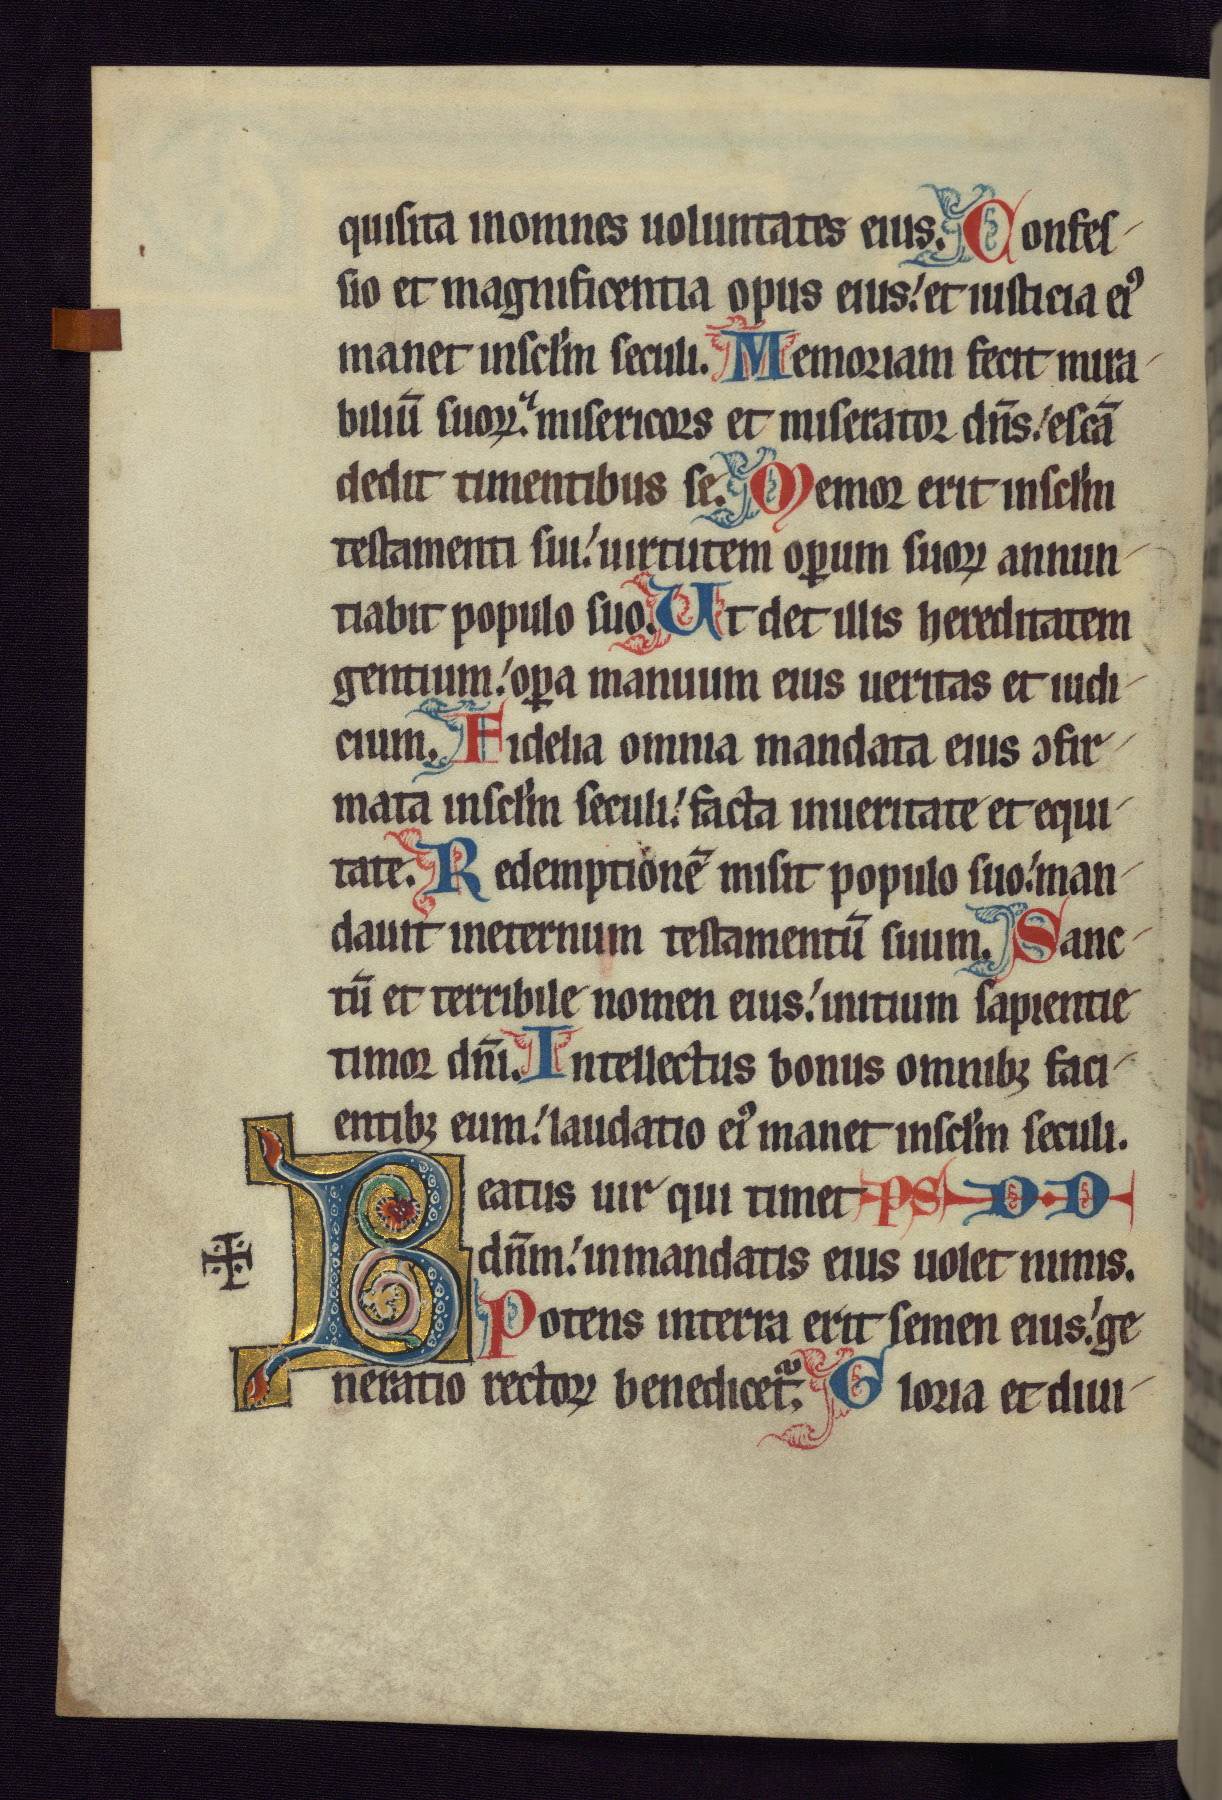 quisita inomnes uoluntates eius. Confes-
sio et magnificentia opus eius: et iusticia ei⁹
manet inscl̃m seculi. Memoriam fecit mira-
biliũ suoꝝ: misericors et miserator dñs: escã
dedit timentibus se. Memor erit inscl̃m
testamenti sui: uirtutem oꝑum suoꝝ annun-
tiabit populo suo. Ut det illis hereditatem
gentium: oꝑa manuum eius ueritas et iudi-
cium. Fidelia omnia mandata eius ꝯfir-
mata inscl̃m seculi: facta inueritate et equi-
tate. Redemptionẽ misit populo suo: man-
dauit ineternum testamentũ suum. Sanc-
tũ et terribile nomen eius: initium sapientie
timor dñi. Intellectus bonus omnibꝫ faci-
entibꝫ eum: laudatio ei⁹ manet inscl̃m seculi.
Beatus uir qui timet PS D·D
dñm: inmandatis eius uolet nimis.
Potens interra erit semen eius: ge
neratio rectoꝝ benedicet᷑. Gloria et diui-